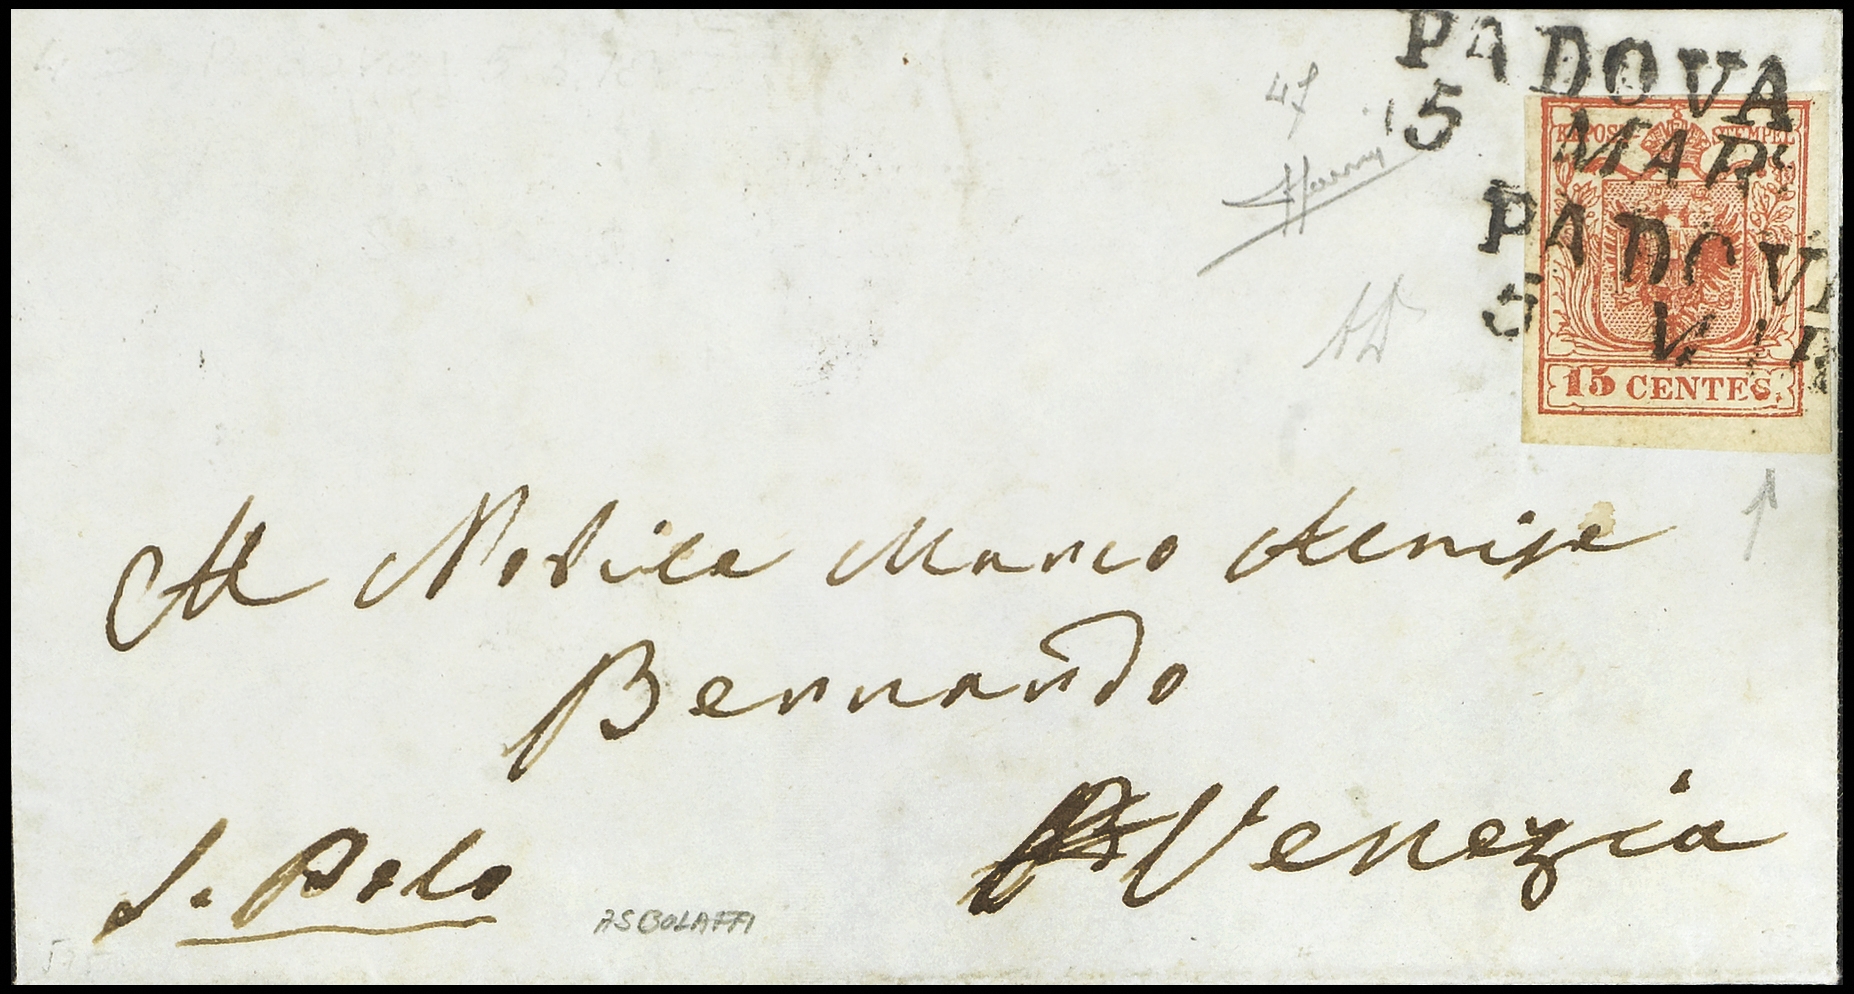 PADOVA
5 MAR
PADOVA
5 MAR
KKPOST STEMPEL
15 CENTES.
47
AD
Al Nobile Marco Alvise
Bernardo
Venezia
S. Polo
ASBOLAFFI